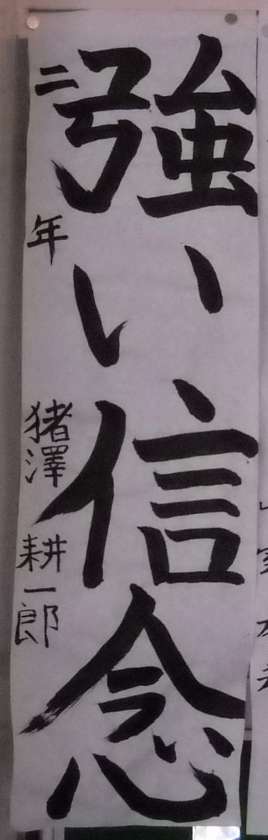 強い信念
二年 猪澤 耕一郎